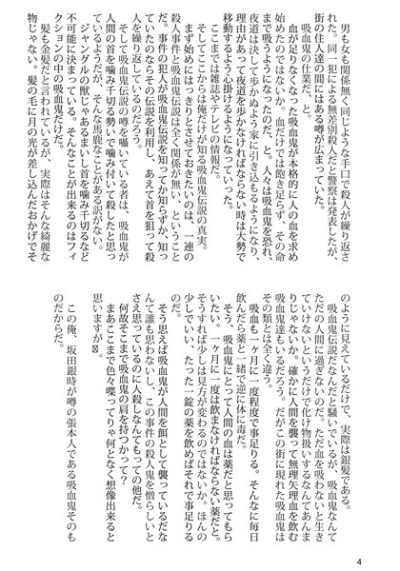 男も女も関係無く同じような手口で殺人が繰り返さ
れた。同一犯による無差別殺人だと警察は発表したが、
街の住人達の間にはある噂が広まっていた。
吸血鬼の仕業だ、と。
血が足りなくなった吸血鬼が本格的に人の血を求め
始めたのではないか。血だけでは飽き足らず、その命
まで吸うようになったのだ、と。人々は吸血鬼を恐れ、
夜道は決して歩かぬよう家に引き込もるようになり、
理由があって夜道を歩かなければならない時は大勢で
移動するよう心掛けるようになっていった。
ここまでは雑誌やテレビの情報だ。
そしてここからは俺だけが知る吸血鬼伝説の真実。
まず始めにはっきりとさせておきたいのは、一連の
殺人事件と吸血鬼伝説は全く関係が無い、ということ
だ。事件の犯人が吸血鬼伝説を知ってか知らずか、知っ
ていたのならその伝説を利用し、あえて首を狙って殺
人を繰り返しているのだろう。
そして吸血鬼伝説の噂を囁いている者は、吸血鬼が
人間の首を噛み千切る勢いで噛み付いて殺したと思っ
ているようだが、そんな馬鹿なことがある訳がない。
ジャングルの獣じゃあるまいし首を噛み千切るなど
不可能に決まっている。そんなことが出来るのはフィ
クションの中の吸血鬼だけだ。
髪も金髪だと言われているが、実際はそんな綺麗な
物じゃない。髪の毛に月の光が差し込んだおかげでそ
のように見えているだけで、実際は銀髪である。
吸血鬼伝説だなんだと騒いでいるが、吸血鬼なんて
ただの人間に過ぎないのだ。ただ血を吸わないと生き
ていけないというだけで化け物扱いするなんてあんま
りじゃないか。確かに人間を襲って無理矢理血を飲む
吸血鬼達もいるだろう。だがこの街に現れた吸血鬼は
その類とは全く違う。
吸血も一ヶ月に一度程度で事足りる。そんなに毎日
飲んだら薬と一緒で逆に体に毒だ。
そう、吸血鬼にとって人間の血は薬だと思ってもら
いたい。一ヶ月に一度は飲まなければならない薬だと。
そうすれば少しは見方が変わるのではないか。ほんの
少しでいい、たった一錠の薬を飲めばそれで事足りる
のだ。
そう思えば吸血鬼が人間を餌として襲っているだな
んて誰も思わないし、この事件の殺人鬼を憎らしいと
さえ思っているのに人殺しなんてもっての他だ。
何故そこまで吸血鬼の肩を持つかって？
まあここまで色々喋ってりゃ何となく想像出来ると
思いますが⊠。
この俺、坂田銀時が噂の張本人である吸血鬼そのも
のだからだ。
4